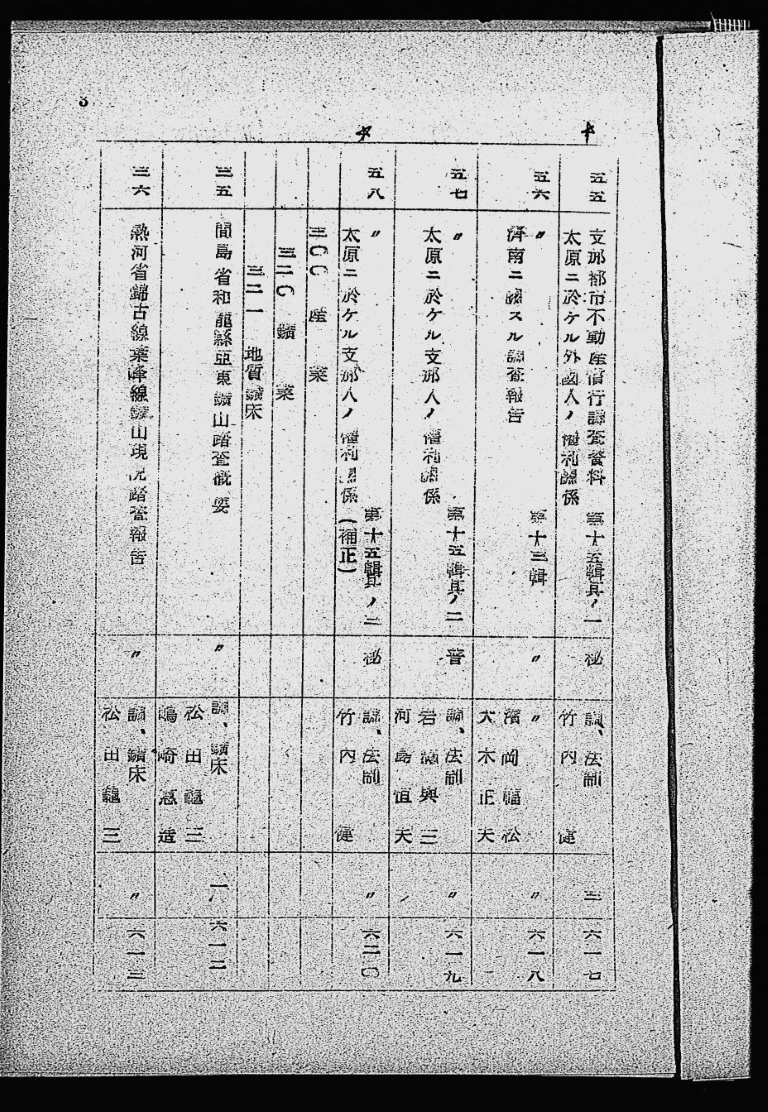 3
五五
支那都市不動産慣行調査資料 第十五輯其ノ一
太原ニ於ケル外國人ノ權利關係
秘
調、法制
竹内 健
三
六一七
五六
〃 第十三輯
濟南ニ關スル調査報告
〃
〃
濱岡福松
大木正夫
〃
六一八
五七
〃 第十五輯其ノ二
太原ニ於ケル支那人ノ權利關係
普
調、法制
岩 與三
河島恒夫
〃
六一九
五八
〃 第十五輯其ノ二
太原ニ於ケル支那人ノ權利關係(補正)
秘
調、法制
竹内 健
〃
六二〇
三〇〇 産業
三二〇 鑛業
三二一 地質鑛床
三五
間島省和龍縣亞東鑛山踏査概要
〃
調、鑛床
松田龜三
嶋崎 造
一八
六一二
三六
熱河省錦古線葉峰線鑛山現況踏査報告
〃
調、鑛床
松田龜三
〃
六一三